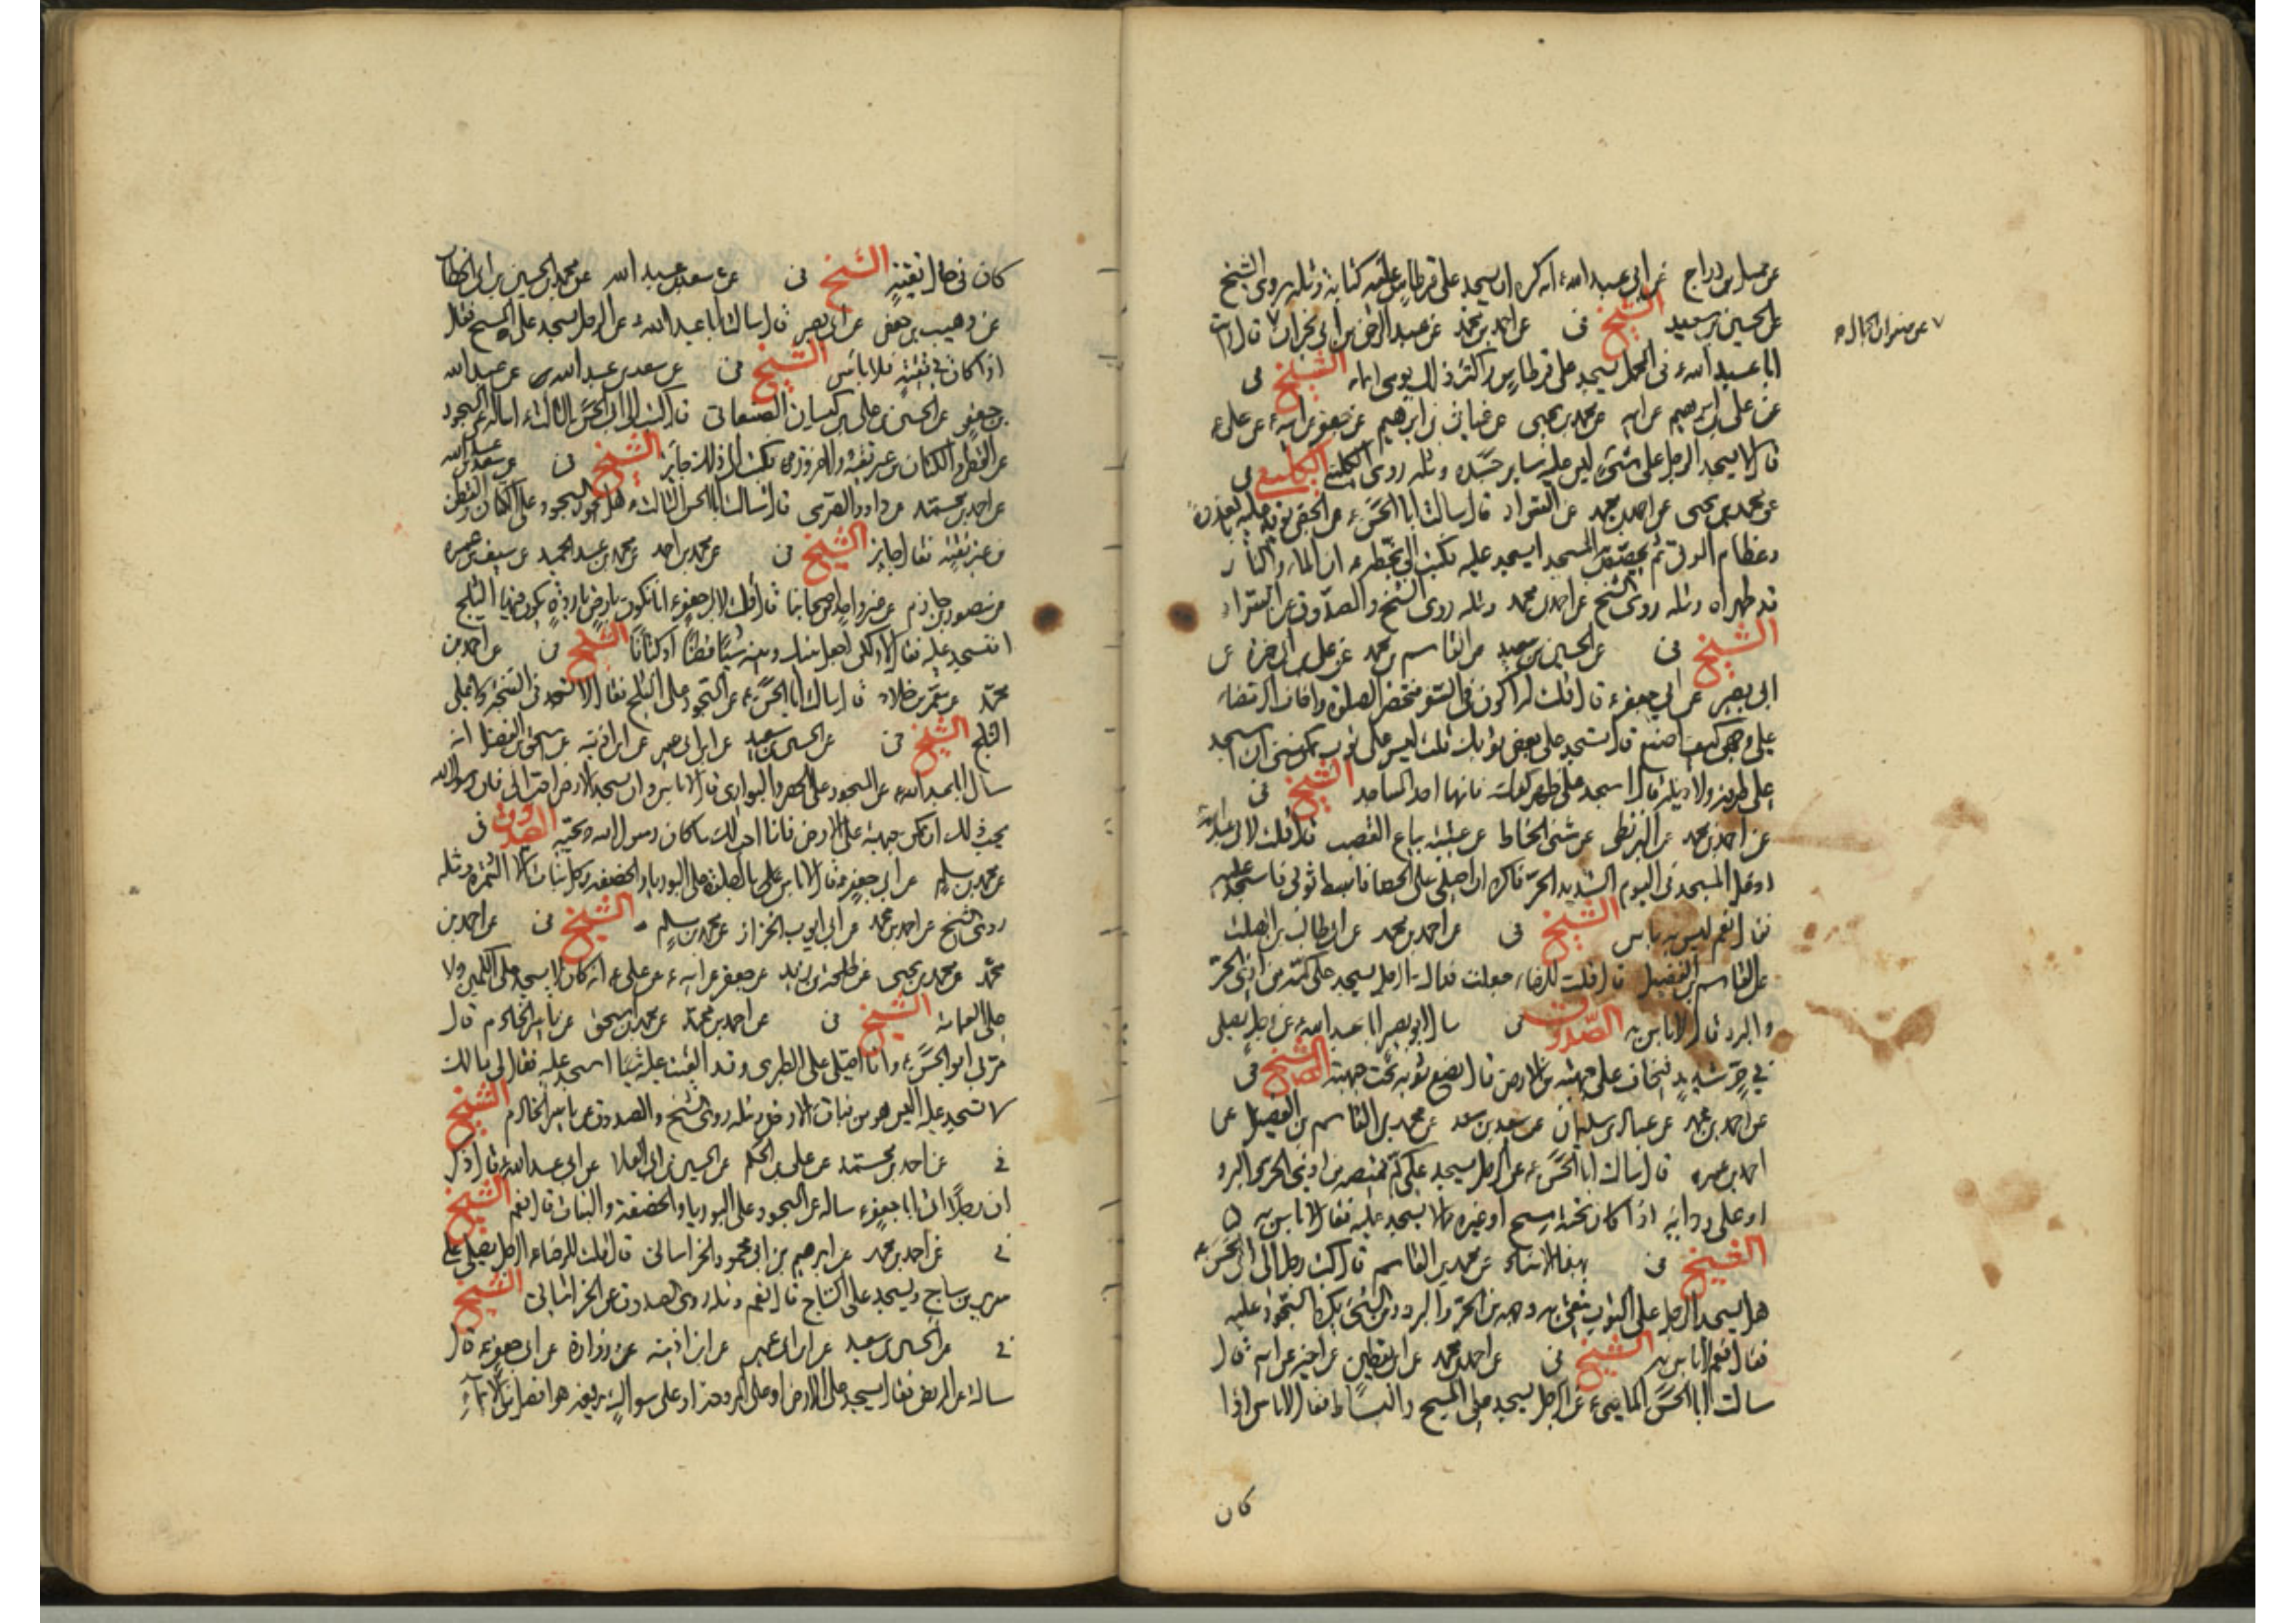 عن جميل بن دراج عن ابي عبد الله ع انه كره ان يسجد على قرطاس عليه كتابة ومثله روى الشيخ
عن الحسين بن سعيد الشيخ في عن احمد بن محمد عن عبد الرحمن بن ابي نجران ٧ قال رايت
٧ عن صفوان الجمال صح
ابا عبد الله ع في المحمل يسجد على قرطاس واكثر ذلك يومي ايماء الشيخ في
عن علي بن ابرهيم عن ابيه عن محمد بن يحيى عن غياث بن ابرهيم عن جعفر عن ابيه ع عن علي ع
قال لا يسجد الرجل على شيء ليس عليه ساير جسده ومثله روى الكليني الكليني في
عن محمد بن يحيى عن احمد بن محمد عن السراد قال سالت ابا الحسن ع عن الجص يوقد عليه بالعذرة
وعظام الموتى ثم يجصص به المسجد ايسجد عليه فكتب الي بخطه ع ان الماء والنار
قد طهراه ومثله روى الشيخ عن احمد بن محمد ومثله روى الشيخ والصدوق عن السراد
الشيخ في عن الحسين بن سعيد عن القاسم بن محمد عن علي بن ابي حمزة عن
ابي بصير عن ابي جعفر ع قال قلت له اكون في السفر فتحضر الصلوة واخاف الرمضاء
على وجهي كيف اصنع قال تسجد على بعض ثوبك قلت ليس علي ثوب يمكنني ان اسجد
على طرفه ولا ذيله قال اسجد على ظهر كفك فانها احد المساجد الشيخ في
عن احمد بن محمد عن البزنطي عن مثنى الحناط عن عيينة بياع القصب قال قلت لابي عبد الله ع
ادخل المسجد في اليوم الشديد الحر فاكره ان اصلي على الحصا فابسط ثوبي فاسجد عليه
فقال نعم ليس به باس الشيخ في عن احمد بن محمد عن ابي طالب بن الصلت
عن القاسم بن الفضيل قال قلت للرضا ع جعلت فداك الرجل يسجد على كمه من اذى الحر
والبرد قال لا باس به الصدوق في سال ابو بصير ابا عبد الله ع عن رجل يصلي
في حر شديد فيخاف على جبهته من الارض قال يضع ثوبه تحت جبهته الشيخ في
عن احمد بن محمد عن عباد بن سليمان عن سعد بن سعد عن محمد بن القاسم بن الفضيل عن
احمد بن عمر قال سالت ابا الحسن ع عن الرجل يسجد على كم قميصه من اذى الحر والبرد
او على ردائه اذا كان تحته مسح او غيره مما لا يسجد عليه فقال لا باس به
الشيخ في بهذا الاسناد عن محمد بن القاسم قال كتب رجل الى ابي الحسن ع
هل يسجد الرجل على الثوب يتقي به وجهه من الحر والبرد ومن الشيء يكره السجود عليه
فقال نعم لا باس به الشيخ في عن احمد بن محمد عن ابن يقطين عن اخيه عن ابيه قال
سالت ابا الحسن الماضي ع عن الرجل يسجد على المسح والبساط فقال لا باس اذا
كان
كان في حال تقية الشيخ في عن سعد بن عبد الله عن محمد بن الحسين بن ابي الخطاب
عن وهيب بن حفص عن ابي بصير قال سالت ابا عبد الله ع عن الرجل يسجد على المسح فقال
اذا كان في تقية فلا باس الشيخ في عن سعد بن عبد الله عن عبد الله
بن جعفر عن الحسين بن علي بن كيسان الصنعاني قال كتبت الى ابي الحسن الثالث ع اساله عن السجود
على القطن والكتان من غير تقية ولا ضرورة فكتب الي ذلك جايز الشيخ في عن سعد بن عبد الله
عن احمد بن محمد عن داود الصرمي قال سالت ابا الحسن الثالث ع هل يجوز السجود على الكتان والقطن
من غير تقية فقال جايز الشيخ في عن محمد بن احمد عن محمد بن عبد الحميد عن سيف بن عميرة
عن منصور بن حازم عن غير واحد من اصحابنا قال قلت لابي جعفر ع انا نكون بارض باردة يكون فيها الثلج
افنسجد عليه فقال لا ولكن اجعل بينك وبينه شيئا قطنا او كتانا الشيخ في عن احمد بن
محمد عن معمر بن خلاد قال سالت ابا الحسن ع عن السجود على الثلج فقال لا تسجد في السبخة ولا على
الثلج الشيخ في عن الحسين بن سعيد عن ابن ابي عمير عن ابن اذينة عن اسحق بن الفضل انه
سال ابا عبد الله ع عن السجود على الحصر والبواري فقال لا باس وان يسجد على الارض احب الي فان رسول الله
يحب ذلك ان يمكن جبهته على الارض فانا احب لك ما كان رسول الله يحبه الصدوق في
عن محمد بن مسلم عن ابي جعفر ع قال لا باس بالصلوة على البوريا والخصفة وكل نبات الا الثمرة ومثله
روى الشيخ عن احمد بن محمد عن ابي ايوب الخزاز عن محمد بن مسلم الشيخ في عن احمد بن
محمد عن محمد بن يحيى عن طلحة بن زيد عن جعفر عن ابيه ع عن علي ع انه كان لا يسجد على الكمين ولا
على العمامة الشيخ في عن احمد بن محمد عن محمد بن اسحق عن ياسر الخادم قال
مر بي ابو الحسن ع وانا اصلي على الطبري وقد القيت عليه شيئا اسجد عليه فقال لي مالك
لا تسجد عليه اليس هو من نبات الارض ومثله روى الشيخ والصدوق عن ياسر الخادم الشيخ
في عن احمد بن محمد عن علي بن الحكم عن الحسين بن ابي العلا عن ابي عبد الله ع قال ذكر
ان رجلا اتى ابا جعفر ع ساله عن السجود على البوريا والخصفة والنبات قال نعم الشيخ
في عن احمد بن محمد عن ابرهيم بن ابي محمود الخراساني قال قلت للرضا ع الرجل يصلي على
سرير من ساج ويسجد على الساج قال نعم ومثله روى الصدوق عن الخراساني الشيخ
في عن الحسين بن سعيد عن ابن ابي عمير عن ابن اذينة عن زرارة عن ابي جعفر ع قال
سالته عن المريض فقال يسجد على الارض او على المروحة او على سواك يرفعه هو افضل من الايماء